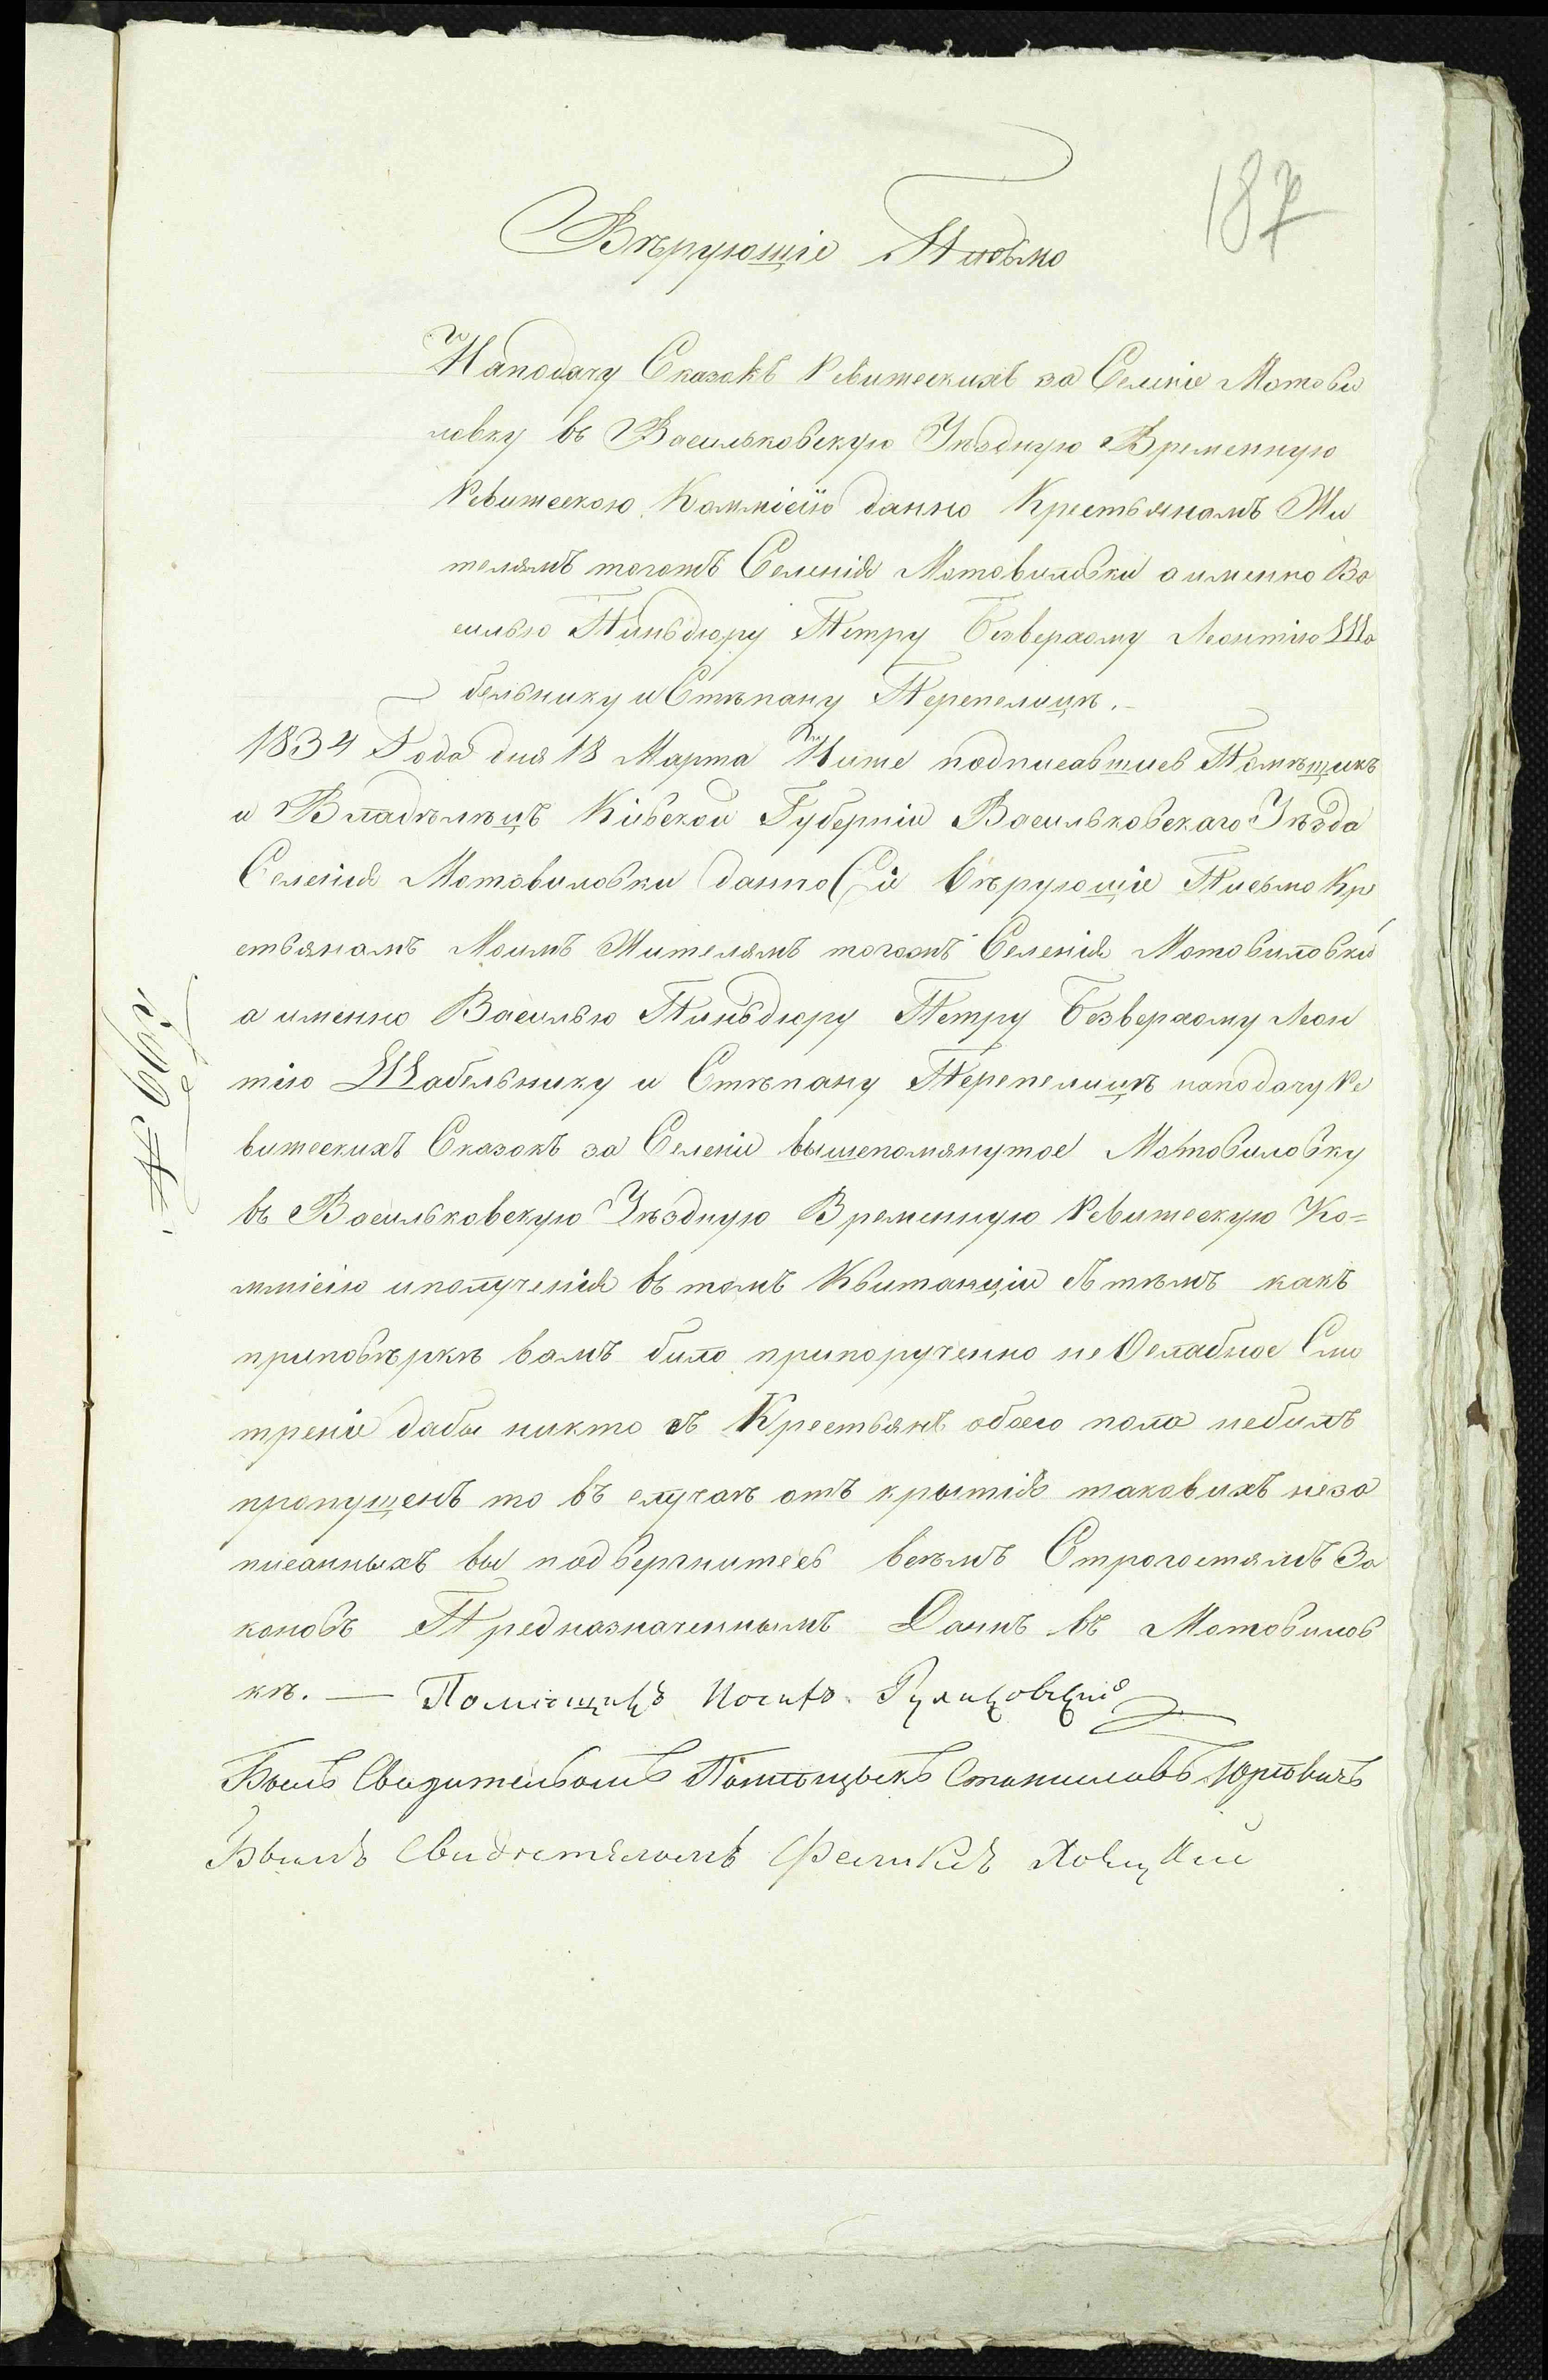 187
Вѣрующіе Письмо
Наподачу Сказокъ Ревижскихъ за Селеніе Мотови
ловку въ Васильковскую Уѣздную Временную
Ревижскою Коммісію данно Крестьяномъ Жи
телямъ тогожъ Селенія Мотовиловки а именно Ва
силью Пиньдюру Петру Безверхому Леонтію Ша
бельнику и Стѣпану Перепелицѣ.
1834 Года дня 18 Марта Ниже подписавшись Помѣщикъ
и Владѣлецъ Кіевской Губерніи Васильковскаго Уѣзда
Селенія Мотовиловки данно Сіи Вѣрующіе Письмо Кр
стьянамъ Моимъ Жителямъ тогожъ Селенія Мотовиловки
а именно Василью Пиньдюру Петру Безверхому Леон
тію Шабельнику и Стѣпану Перепелицѣ наподачу Ре
вижскихъ Сказокъ за Селеніе вышепомянутое Мотовиловку
въ Васильковскую Уѣздную Временную Ревижскую Ко=
ммісію иполученія въ томъ Квитанціи Съ тѣмъ какъ
приповѣркѣ вамъ било припорученно не Ослабное Смо
треніе дабы никто съ Крестьянъ обоего пола небилъ
пропущенъ то въ случаѣ отъ крытія таковихъ неза
писанныхъ вы подвергнитесь всѣмъ Строгостямъ За
коновъ Предназначеннымъ Данъ въ Мотовилов
кѣ. — Помѣщикъ Іосифъ
Былъ Свидителіомъ Помѣщыкъ Станиславъ Юревичъ
Былъ Свидѣтелемъ